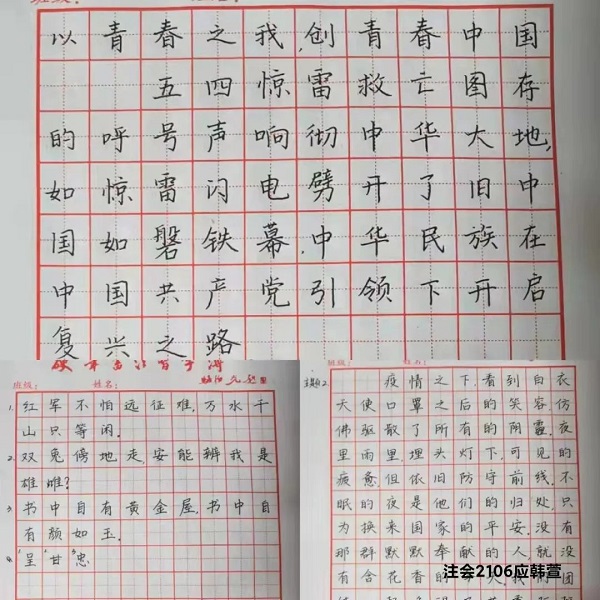 以青春之我,创青春中国
五四惊雷救亡图存
的呼号声响彻中华大地,
如惊雷闪电劈开了旧中
国如磐铁幕.中华民族在
中国共产党引领下开启
复兴之路
班级: 姓名:
1. 红军不怕远征难,万水千
山只等闲.
2. 双兔傍地走,安能辨我是
雄雌?
3. 书中自有黄金屋,书中自
有颜如玉.
4. 呈 甘 忠
疫情之下,看到白衣
天使口罩之后的笑容,仿
佛驱散了所有的阴霾.夜
里雨里埋头灯下.可见的
疲惫但依旧防守前线.不
眠的夜是他们的归处.只
为换来国家的平安.没有
那群默默奉献的人,就没
有含花香的
注会2106应韩萱